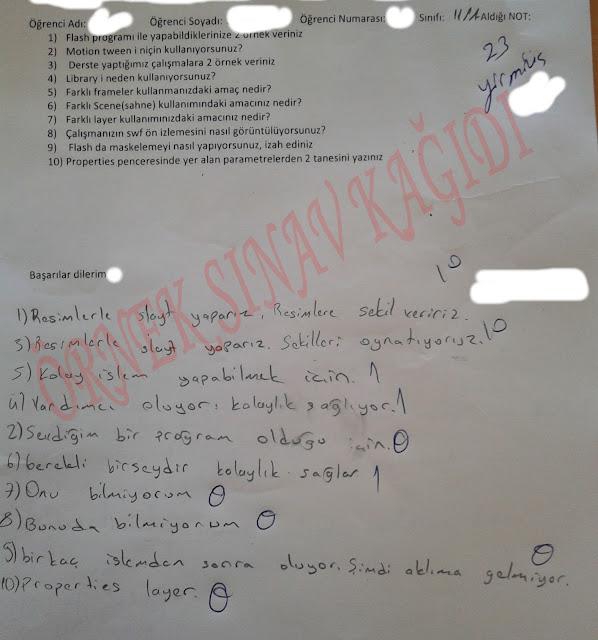 Öğrenci Adı: Öğrenci Soyadı: Öğrenci Numarası: Sınıfı: 11/A Aldığı NOT:
1) Flash programı ile yapabildiklerinize 2 örnek veriniz
2) Motion tween i niçin kullanıyorsunuz?
3) Derste yaptığımız çalışmalara 2 örnek veriniz
4) Library i neden kullanıyorsunuz?
5) Farklı frameler kullanmanızdaki amaç nedir?
6) Farklı Scene(sahne) kullanımındaki amacınız nedir?
7) Farklı layer kullanımınızdaki amacınız nedir?
8) Çalışmanızın swf ön izlemesini nasıl görüntülüyorsunuz?
9) Flash da maskelemeyi nasıl yapıyorsunuz, izah ediniz
10) Properties penceresinde yer alan parametrelerden 2 tanesini yazınız
23
yirmiüç
ÖRNEK SINAV KAĞIDI
Başarılar dilerim
10
1) Resimlerle slayt yaparız, Resimlere sekil veririz.
3) Resimlerle slayt yaparız. Sekilleri oynatıyoruz. 10
5) Kolay islem yapabilmek icin. 1
4) Yardımcı oluyor, kolaylık sağlıyor. 1
2) Sevdiğim bir program olduğu için. 0
6) Gerekli birseydir kolaylık sağlar 1
7) Onu bilmiyorum 0
8) Bunuda bilmiyorum 0
9) birkaç islemden sonra oluyor. Şimdi aklıma gelmiyor. 0
10) Properties layer. 0